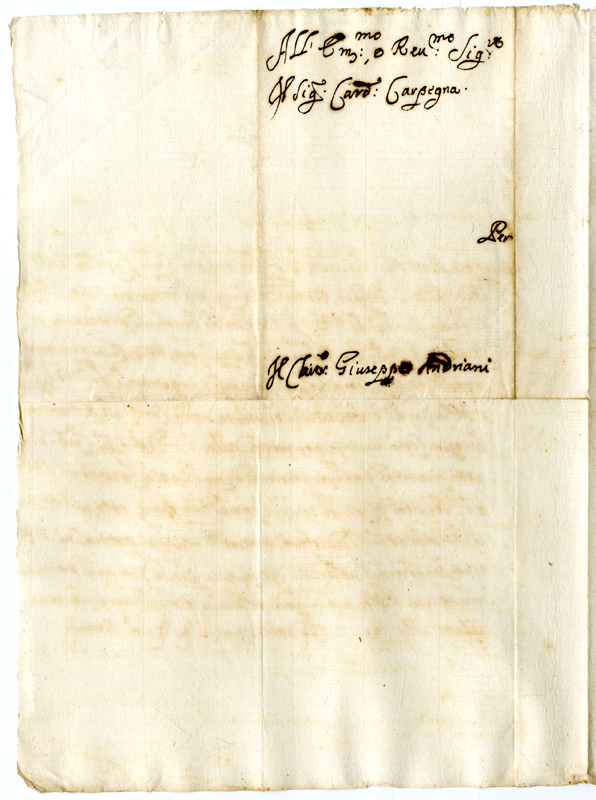 All' Em:mo, e Reu:mo Sig:re
Il Sig: Card: Carpegna.
Per
Il Cau: Giuseppe Andriani